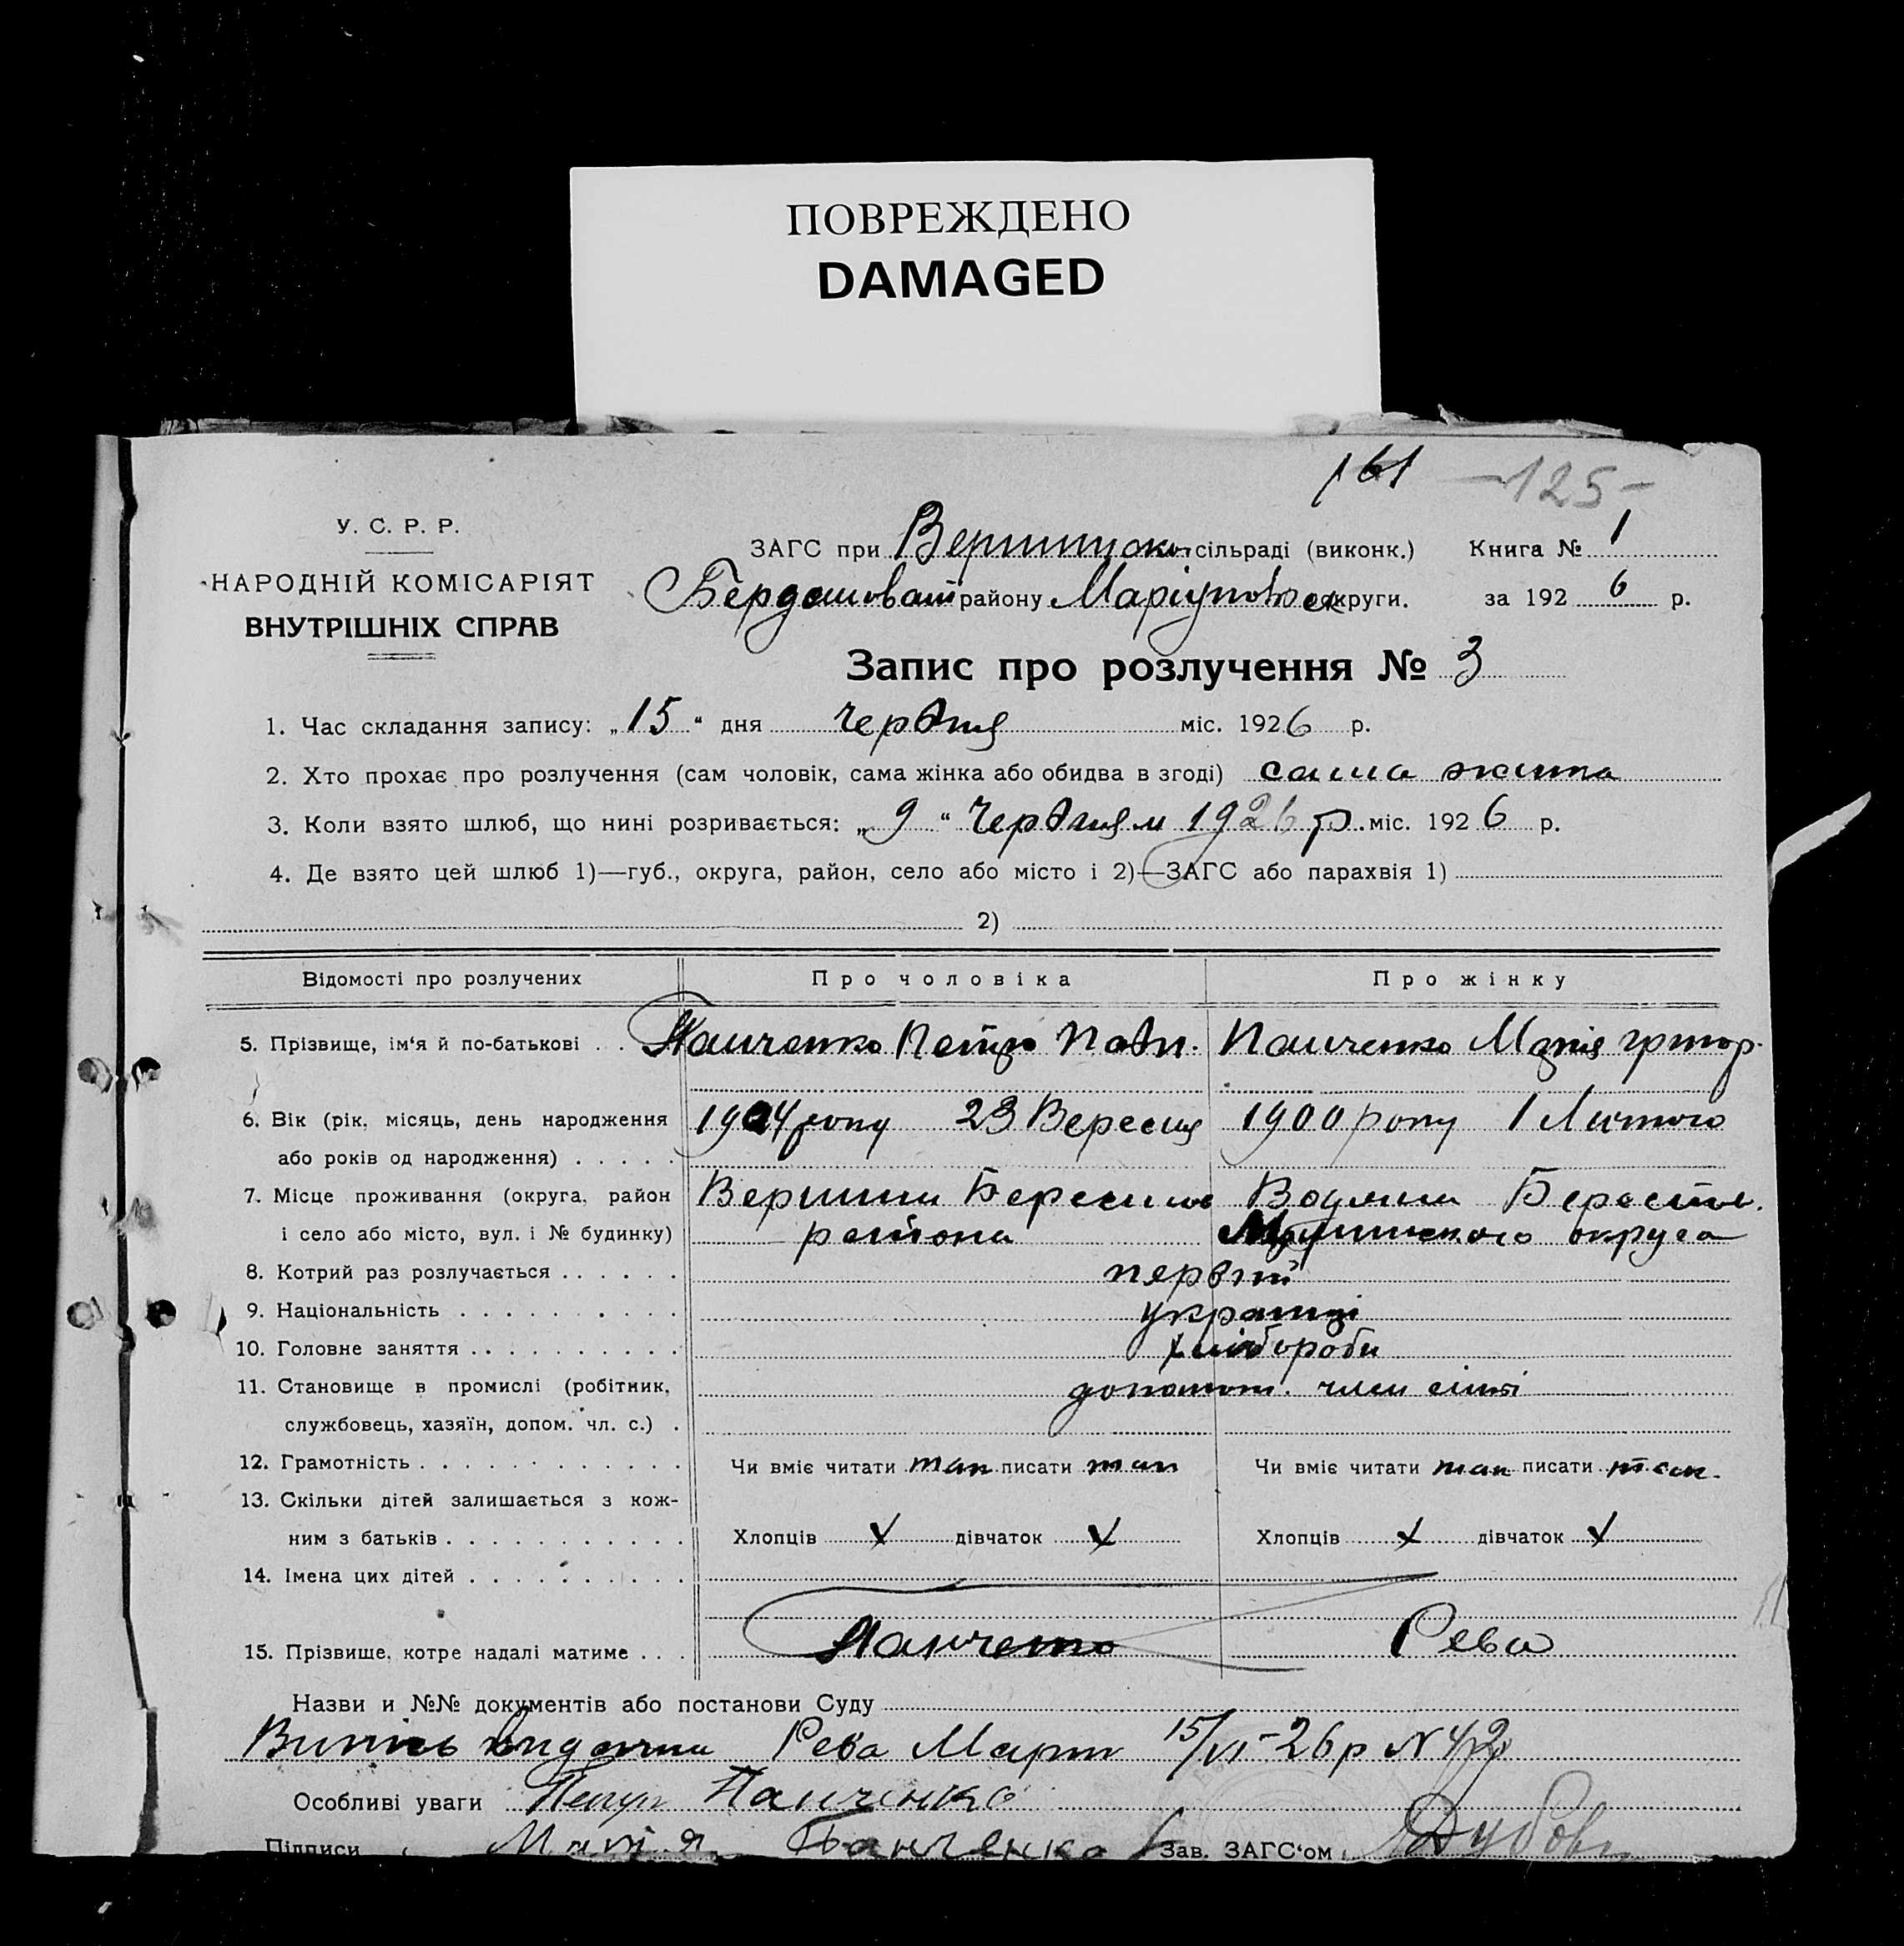 ПОВРЕЖДЕНО
DAMAGED
161 —125—
У. С. Р. Р.
НАРОДНІЙ КОМІСАРІЯТ
ВНУТРІШНІХ СПРАВ
ЗАГС при сільраді (виконк.) Книга № 1
району округи. за 192 6 р.
Запис про розлучення № 3
1. Час складання запису: „15“ дня Червня міс. 1926 р.
2. Хто прохає про розлучення (сам чоловік, сама жінка або обидва в згоді) сама жинка
3. Коли взято шлюб, що нині розривається: „9“ Червня м 1926 р. міс. 1926 р.
4. Де взято цей шлюб 1)—губ., округа, район, село або місто і 2)—ЗАГС або парахвія 1)
2)
Відомості про розлучених Про чоловіка Про жінку
5. Прізвище, ім‘я й по-батькові . . Панченко Петро Павл. Панченко Марія Григор.
6. Вік (рік, місяць, день народження 1904 року 23 Вересня 1900 року 1 Лютого
або років од народження) . . . . .
7. Місце проживання (округа, район Вершини Водяни Берестов.
і село або місто, вул. і № будинку) района округа
8. Котрий раз розлучається . . . . . . первий
9. Національність . . . . . . . . . . українці
10. Головне заняття . . . . . . . . . . хлібороби
11. Становище в промислі (робітник, допомож. член сімї
службовець, хазяїн, допом. чл. с.) .
12. Грамотність . . . . . . . . . . . . Чи вміє читати так писати так Чи вміє читати так писати так.
13. Скільки дітей залишається з кож-
ним з батьків . . . . . . . . . . . Хлопців х дівчаток х Хлопців х дівчаток х
14. Імена цих дітей . . . . . . . . . .
15. Прізвище, котре надалі матиме . . . Панченко Рева
Назви и №№ документів або постанови Суду
Випись видана Рева Марии 15/VI-26р N 42
Особливі уваги Петро Панченко
Підписи Марія Панченко Зав. ЗАГС‘ом